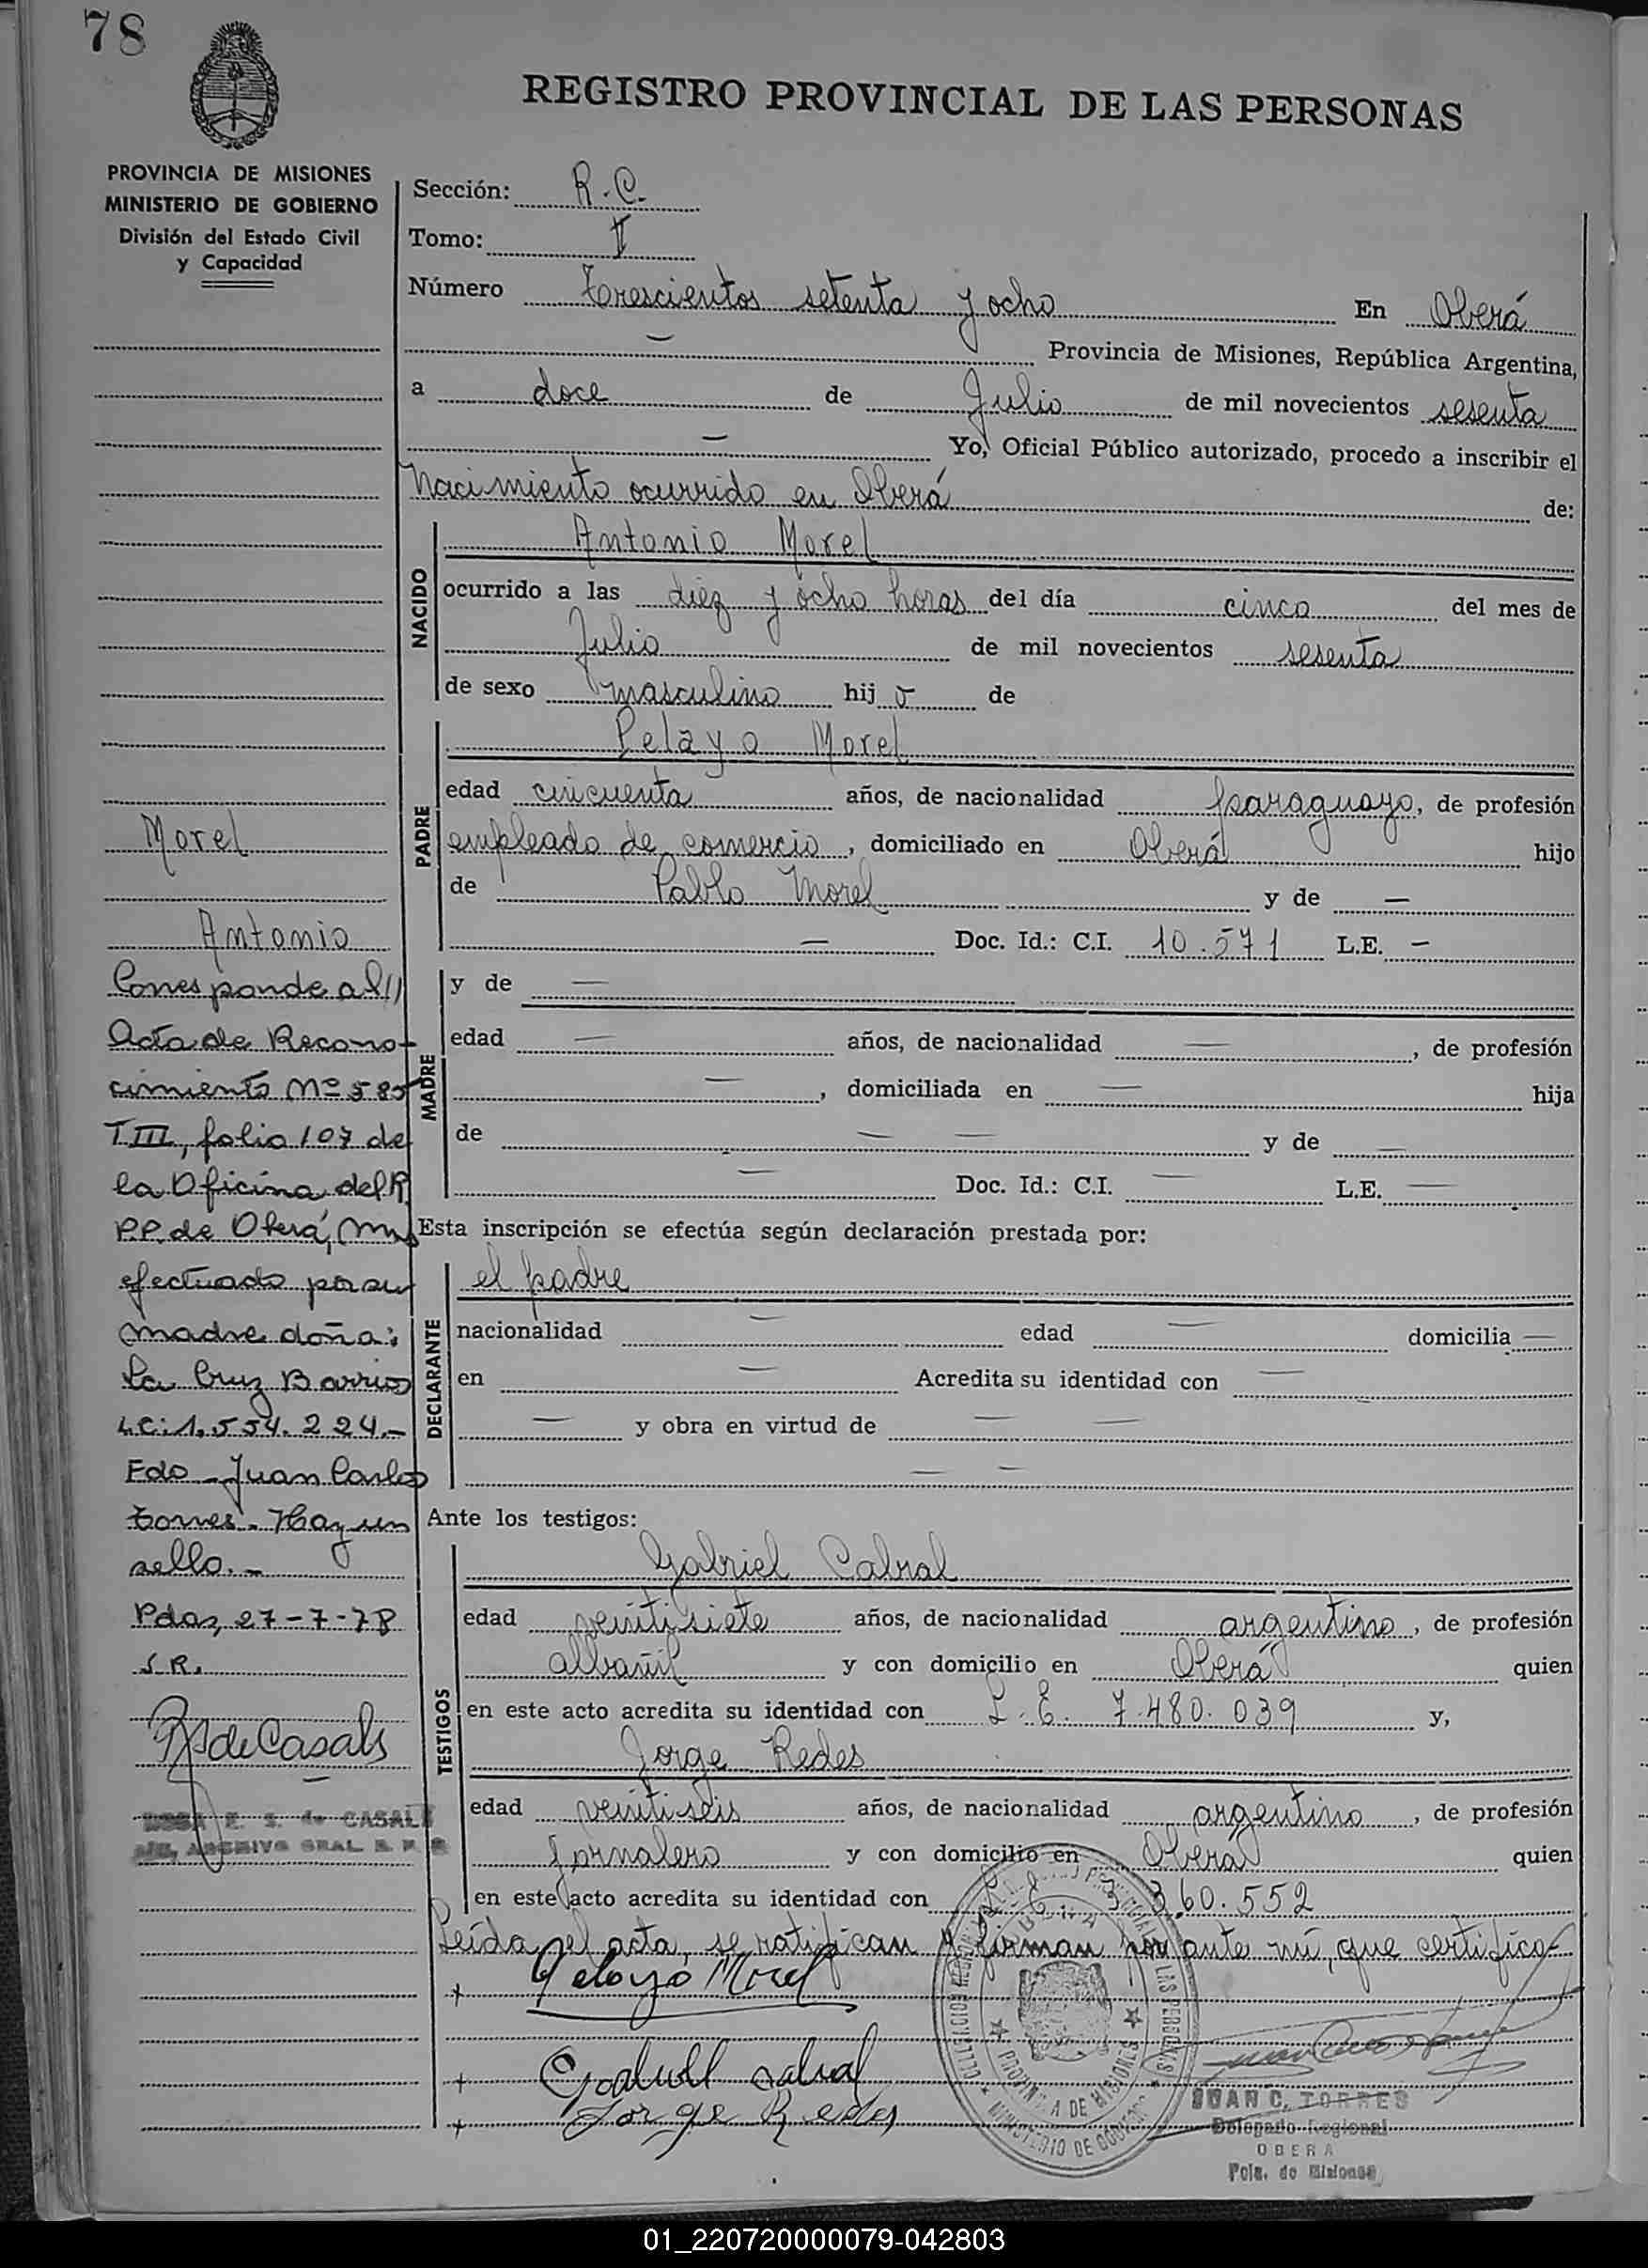 78
REGISTRO PROVINCIAL DE LAS PERSONAS
PROVINCIA DE MISIONES
MINISTERIO DE GOBIERNO
División del Estado Civil
y Capacidad
Sección: R.C.
Tomo: I
Número Trescientos setenta y ocho En Oberá
— Provincia de Misiones, República Argentina,
a doce de Julio de mil novecientos sesenta
— Yo, Oficial Público autorizado, procedo a inscribir el
Nacimiento ocurrido en Oberá de:
NACIDO
Antonio Morel
ocurrido a las diez y ocho horas del día cinco del mes de
Julio de mil novecientos sesenta
de sexo masculino hijo de
PADRE
Pelayo Morel
edad cincuenta años, de nacionalidad paraguayo, de profesión
empleado de comercio, domiciliado en Oberá hijo
de Pablo Morel y de —
— Doc. Id.: C.I. 10.571 L.E. —
MADRE
y de —
edad — años, de nacionalidad —, de profesión
—, domiciliada en — hija
de — — y de —
— Doc. Id.: C.I. — L.E. —
Esta inscripción se efectúa según declaración prestada por:
DECLARANTE
el padre
nacionalidad — edad — domicilia —
en — Acredita su identidad con —
— y obra en virtud de — —
— —
Ante los testigos:
TESTIGOS
Gabriel Cabral
edad veintisiete años, de nacionalidad argentino, de profesión
albañil y con domicilio en Oberá quien
en este acto acredita su identidad con L.E. 7.480.039 y,
Jorge Redes
edad veintiseis años, de nacionalidad argentino, de profesión
Jornalero y con domicilio en Oberá quien
en este acto acredita su identidad con 3.360.552
Leída el acta, se ratifican y firman por ante mí, que certifico
+ Pelayo Morel
+ Gabriel Cabral
+ Jorge Redes
Morel
Antonio
Corresponde al //
Acta de Recono-
cimiento Nº 585
T III, folio 107 de
la Oficina del R.
P.P. de Oberá, Mns
efectuado por su
madre doña:
La Cruz Barrios
L.C: 1.554.224.-
Fdo - Juan Carlos
Torres - Hay un
sello.-
Pdas, 27-7-78
S.R.
R S de Casals
ROSA E. S. de CASALS
ARCHIVO GRAL. R. P. P.
PROVINCIA DE MISIONES
MINISTERIO DE GOBIERNO
JUAN C. TORRES
Delegado Regional
OBERA
Pcia. de Misiones
01_220720000079-042803